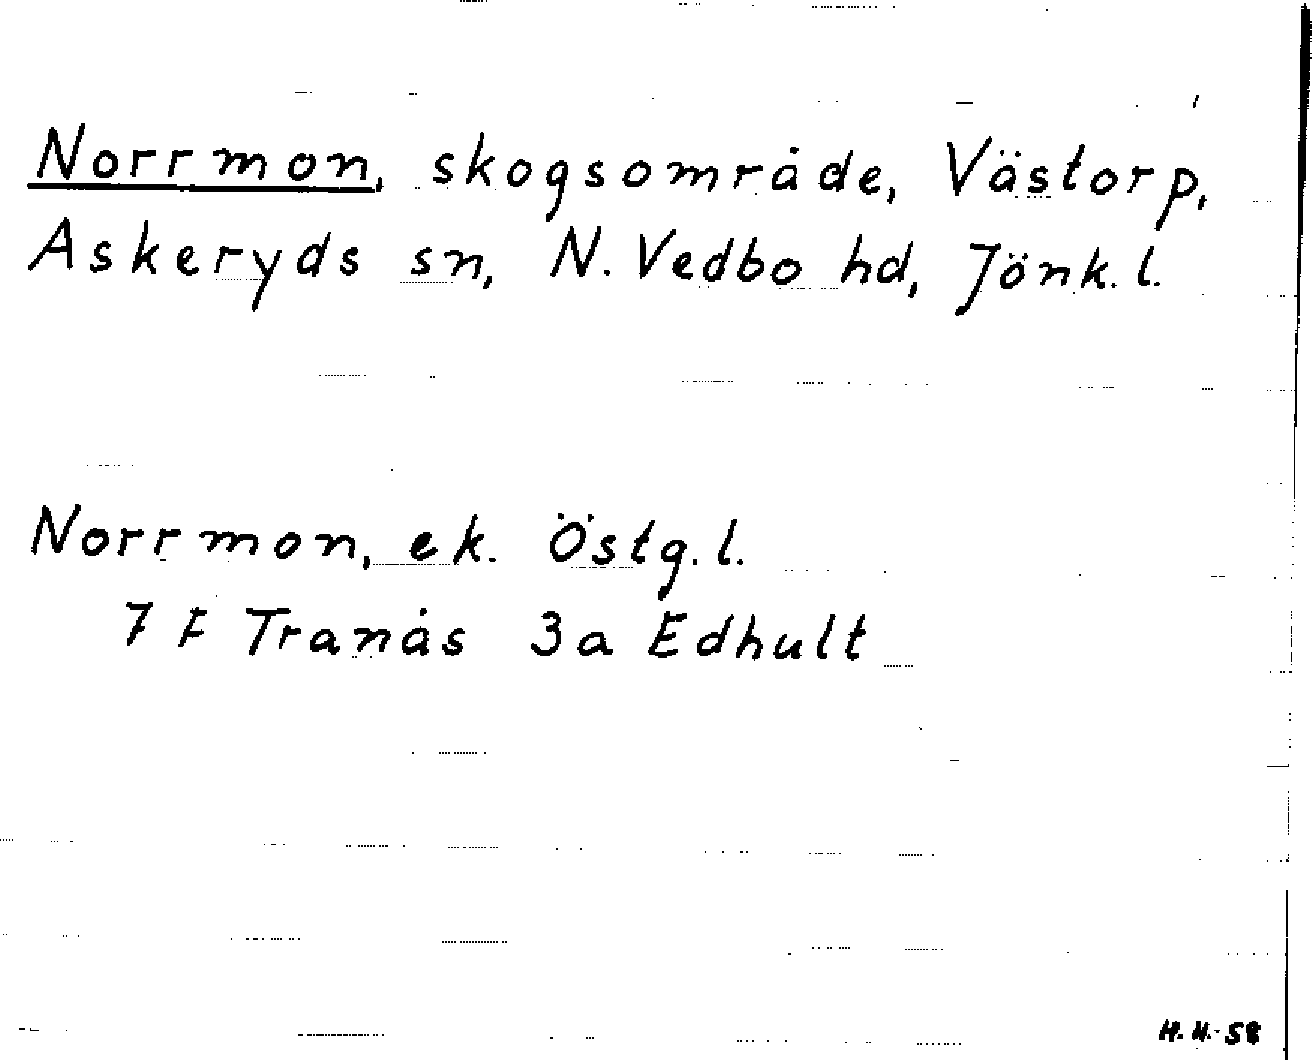 Norrmon, skogsområde, Västorp,
Askeryds sn, N. Vedbo hd, Jönk. l.
Norrmon, ek. Östg. l.
7 F Tranås 3a Edhult
H. H. 58